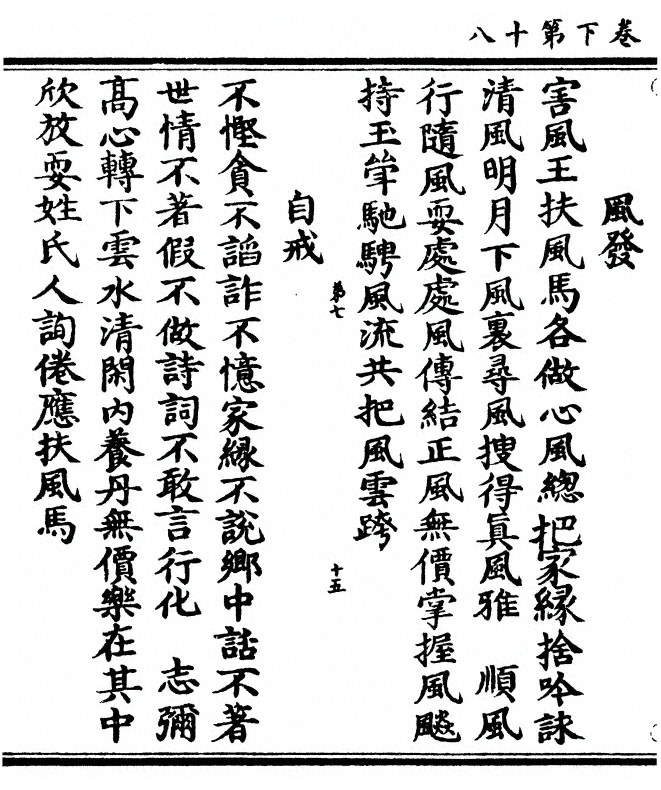 卷下第十八
風發
害風王扶風馬各做心風總把家緣捨吟詠
清風明月下風裏尋風搜得真風雅　順風
行隨風耍處處風傳結正風無價掌握風飈
持玉筆馳騁風流共把風雲跨
第七　十五
自戒
不慳貪不謟詐不憶家緣不說鄉中話不著
世情不著假不做詩詞不敢言行化　志彌
高心轉下雲水清閑内養丹無價樂在其中
欣放耍姓氏人詢倦應扶風馬